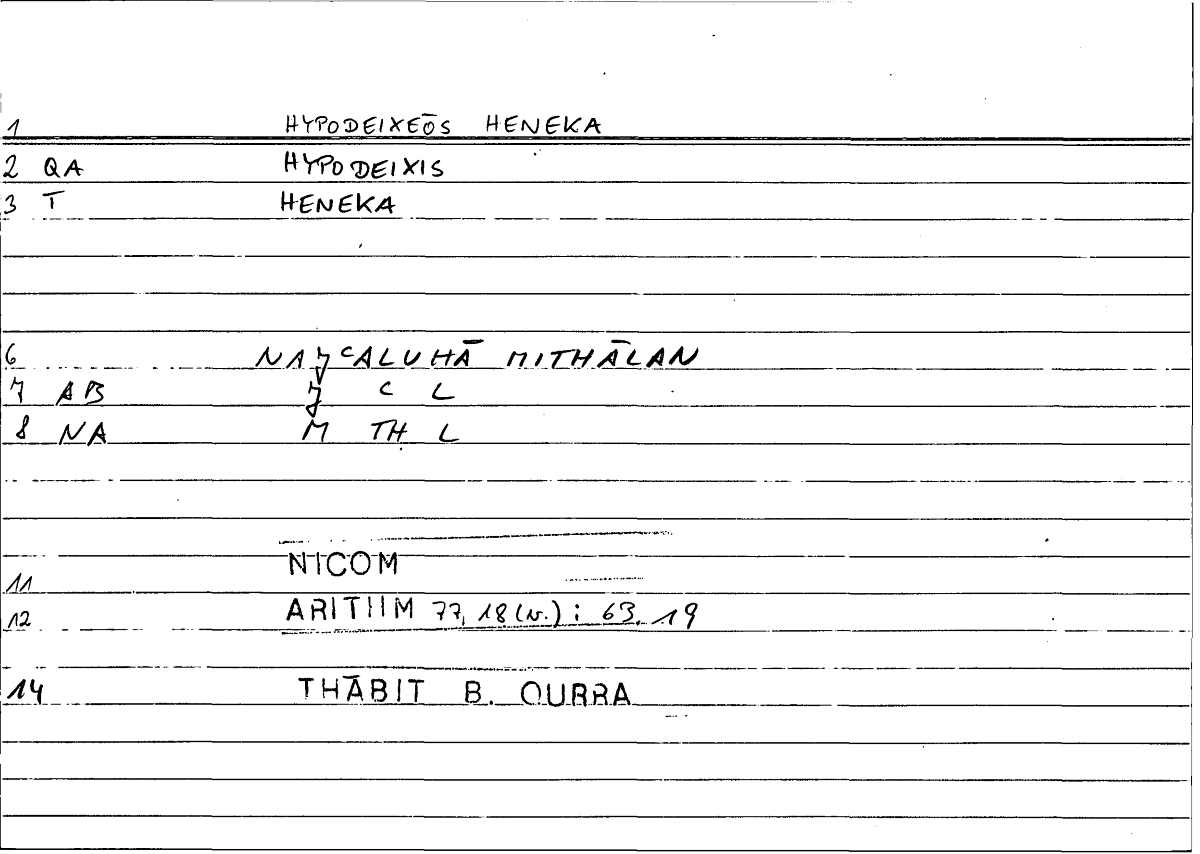 1 HYPODEIXEŌS HENEKA
2 QA HYPODEIXIS
3 T HENEKA
6 NAǰcALUHĀ MITHĀLAN
7 AB ǰ c L
8 NA M TH L
11 NICOM
12 ARITHM 77, 18 (v.) ; 63. 19
14 THĀBIT B. QURRA